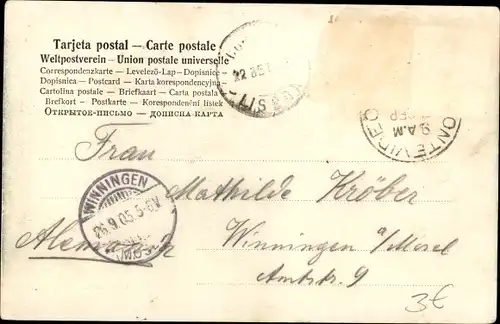 Tarjeta postal — Carte postale
Weltpostverein — Union postale universelle
Correspondenzkarte — Levelező-Lap — Dopisnice
Dopisnica — Postcard — Karta korespondencyjna
Cartolina postale — Briefkaart — Carta postala
Brefkort — Postkarte — Korespondenční lístek
ОТКРЫТОЕ-ПИСЬМО — ДОПИСНА-КАРТА
LISBOA
MONTEVIDEO
9 A.M
Frau
Mathilde Kröber
Winningen a/Mosel
Amtstr. 9
WINNINGEN
26.9.05.5-6V
(MOSEL)
3€